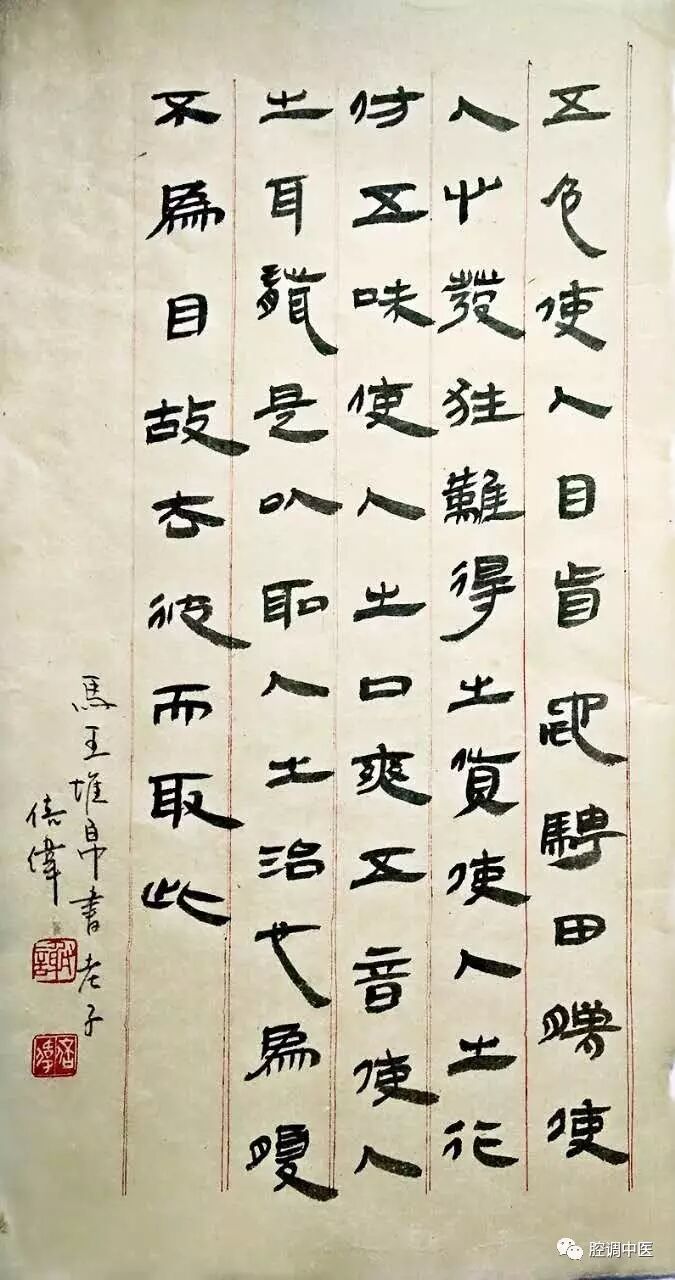 五色使人目盲馳騁田臘使
人心發狂難得之貨使人之行
仿五味使人之口爽五音使人
之耳聾是以聖人之治也為腹
不為目故去彼而取此
馬王堆帛書老子
腔调中医